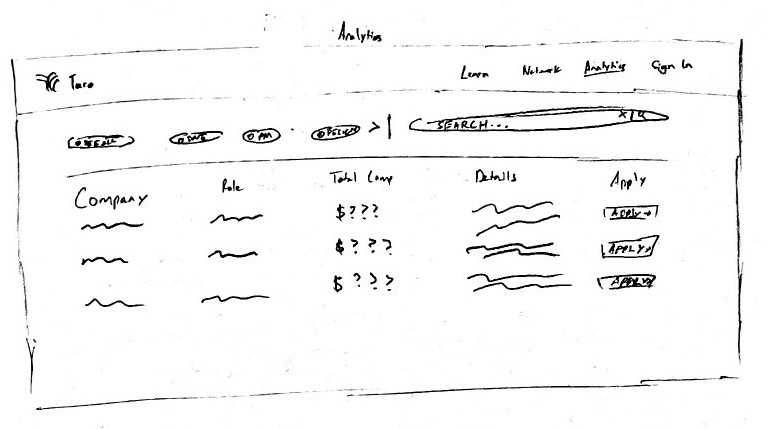 Analytics
Taro Learn Network Analytics Sign In
PM > | SEARCH... X | Q
Company Role Total Comp Details Apply
$??? APPLY →
$??? APPLY →
$??? APPLY